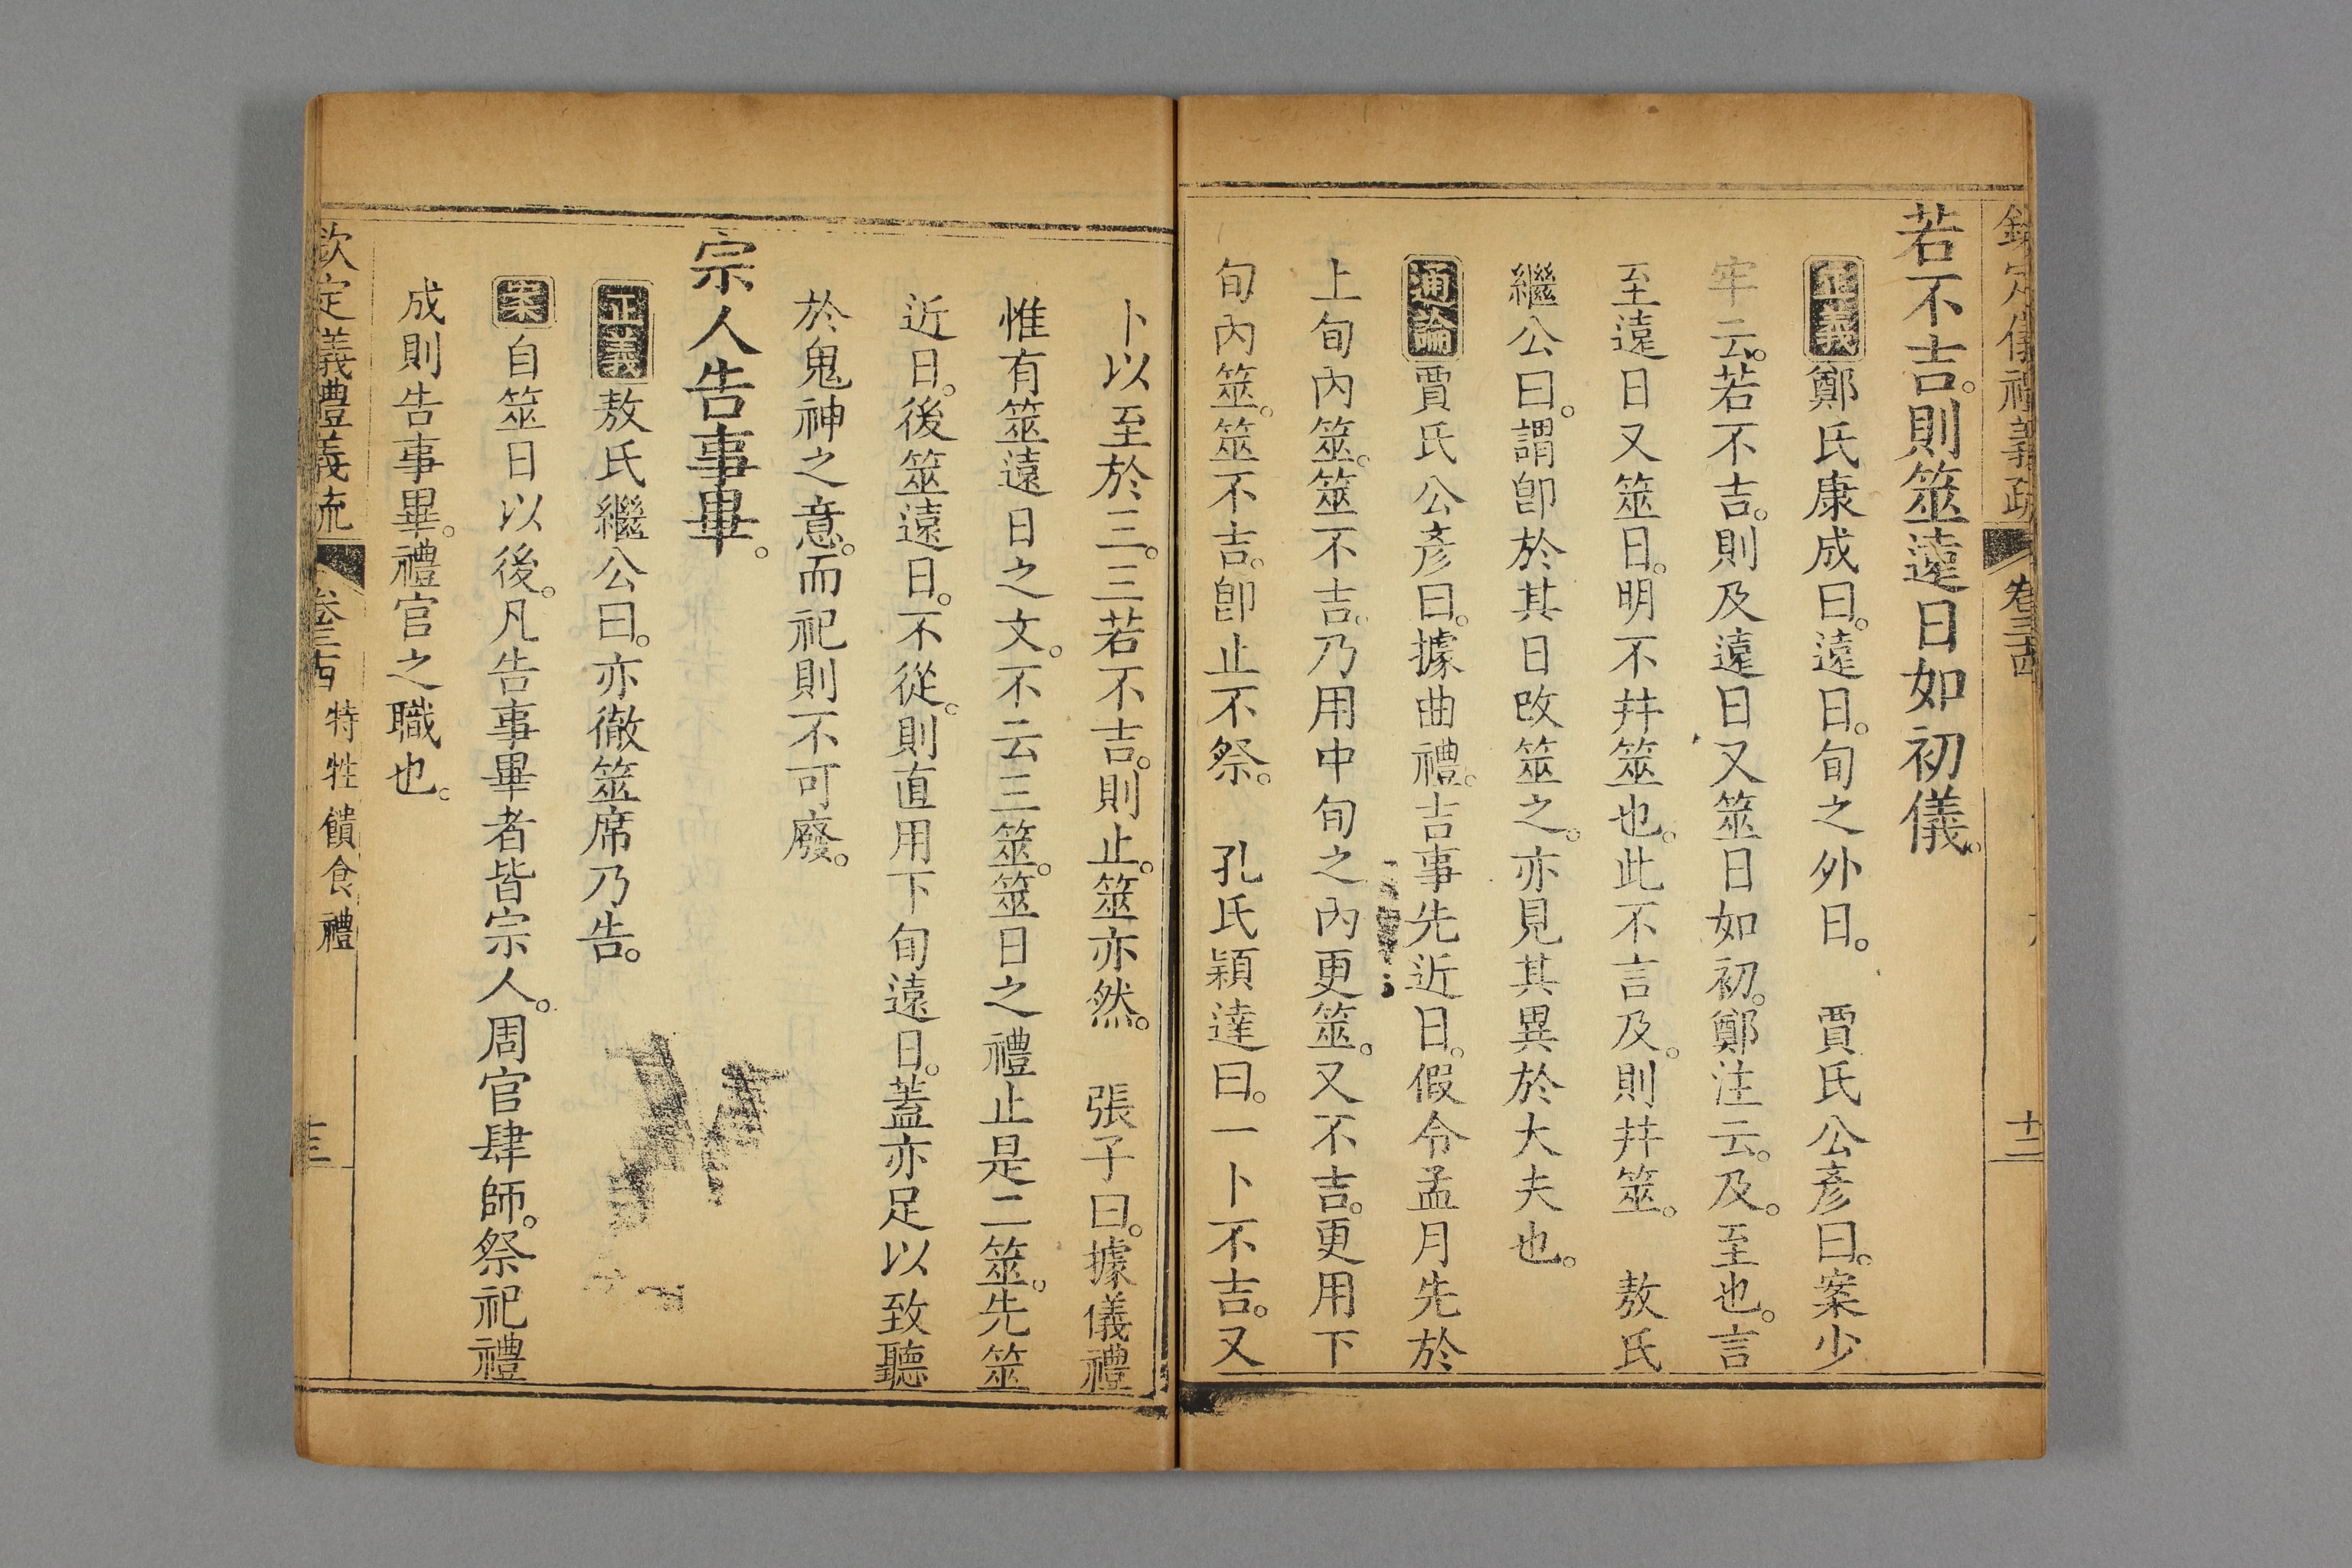 欽定儀禮義疏 卷三十四 十二
若不吉。則筮遠日如初儀。
正義鄭氏康成曰。遠日。旬之外日。 賈氏公彥曰。案少
牢云。若不吉。則及遠日又筮日如初。鄭注云。及。至也。言
至遠日又筮日。明不幷筮也。此不言及。則幷筮。 敖氏
繼公曰。謂卽於其日改筮之。亦見其異於大夫也。
通論賈氏公彥曰。據曲禮。吉事先近日。假令孟月先於
上旬內筮。筮不吉。乃用中旬之內更筮。又不吉。更用下
旬內筮。筮不吉。卽止不祭。 孔氏穎達曰。一卜不吉。又
卜以至於三。三若不吉。則止。筮亦然。 張子曰。據儀禮
惟有筮遠日之文。不云三筮。筮日之禮止是二筮。先筮
近日。後筮遠日。不從。則直用下旬遠日。蓋亦足以致聽
於鬼神之意。而祀則不可廢。
宗人告事畢。
正義敖氏繼公曰。亦徹筮席乃告。
案自筮日以後。凡告事畢者皆宗人。周官肆師。祭祀禮
成則告事畢。禮官之職也。
欽定儀禮義疏 卷三十四 特牲饋食禮 十三